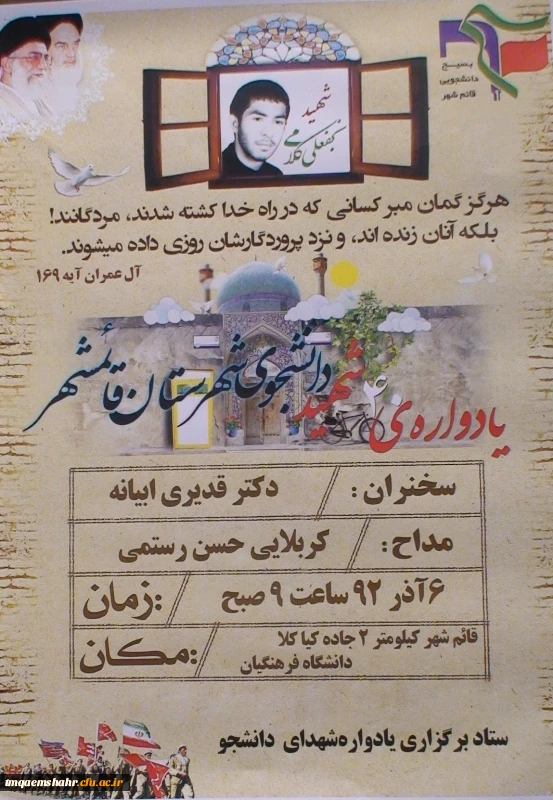 بسیج
دانشجویی
قائم شهر
شهید
هرگز گمان مبر کسانی که در راه خدا کشته شدند، مردگانند!
بلکه آنان زنده اند، و نزد پروردگارشان روزی داده میشوند.
آل عمران آیه ۱۶۹
یادواره‌ی ۶۴ شهید دانشجوی شهرستان قائمشهر
سخنران : دکتر قدیری ابیانه
مداح : کربلایی حسن رستمی
۶ آذر ۹۲ ساعت ۹ صبح زمان:
قائم شهر کیلومتر ۲ جاده کیا کلا
دانشگاه فرهنگیان مکان:
ستاد برگزاری یادواره شهدای دانشجو
tmqaemshahr.cfu.ac.ir